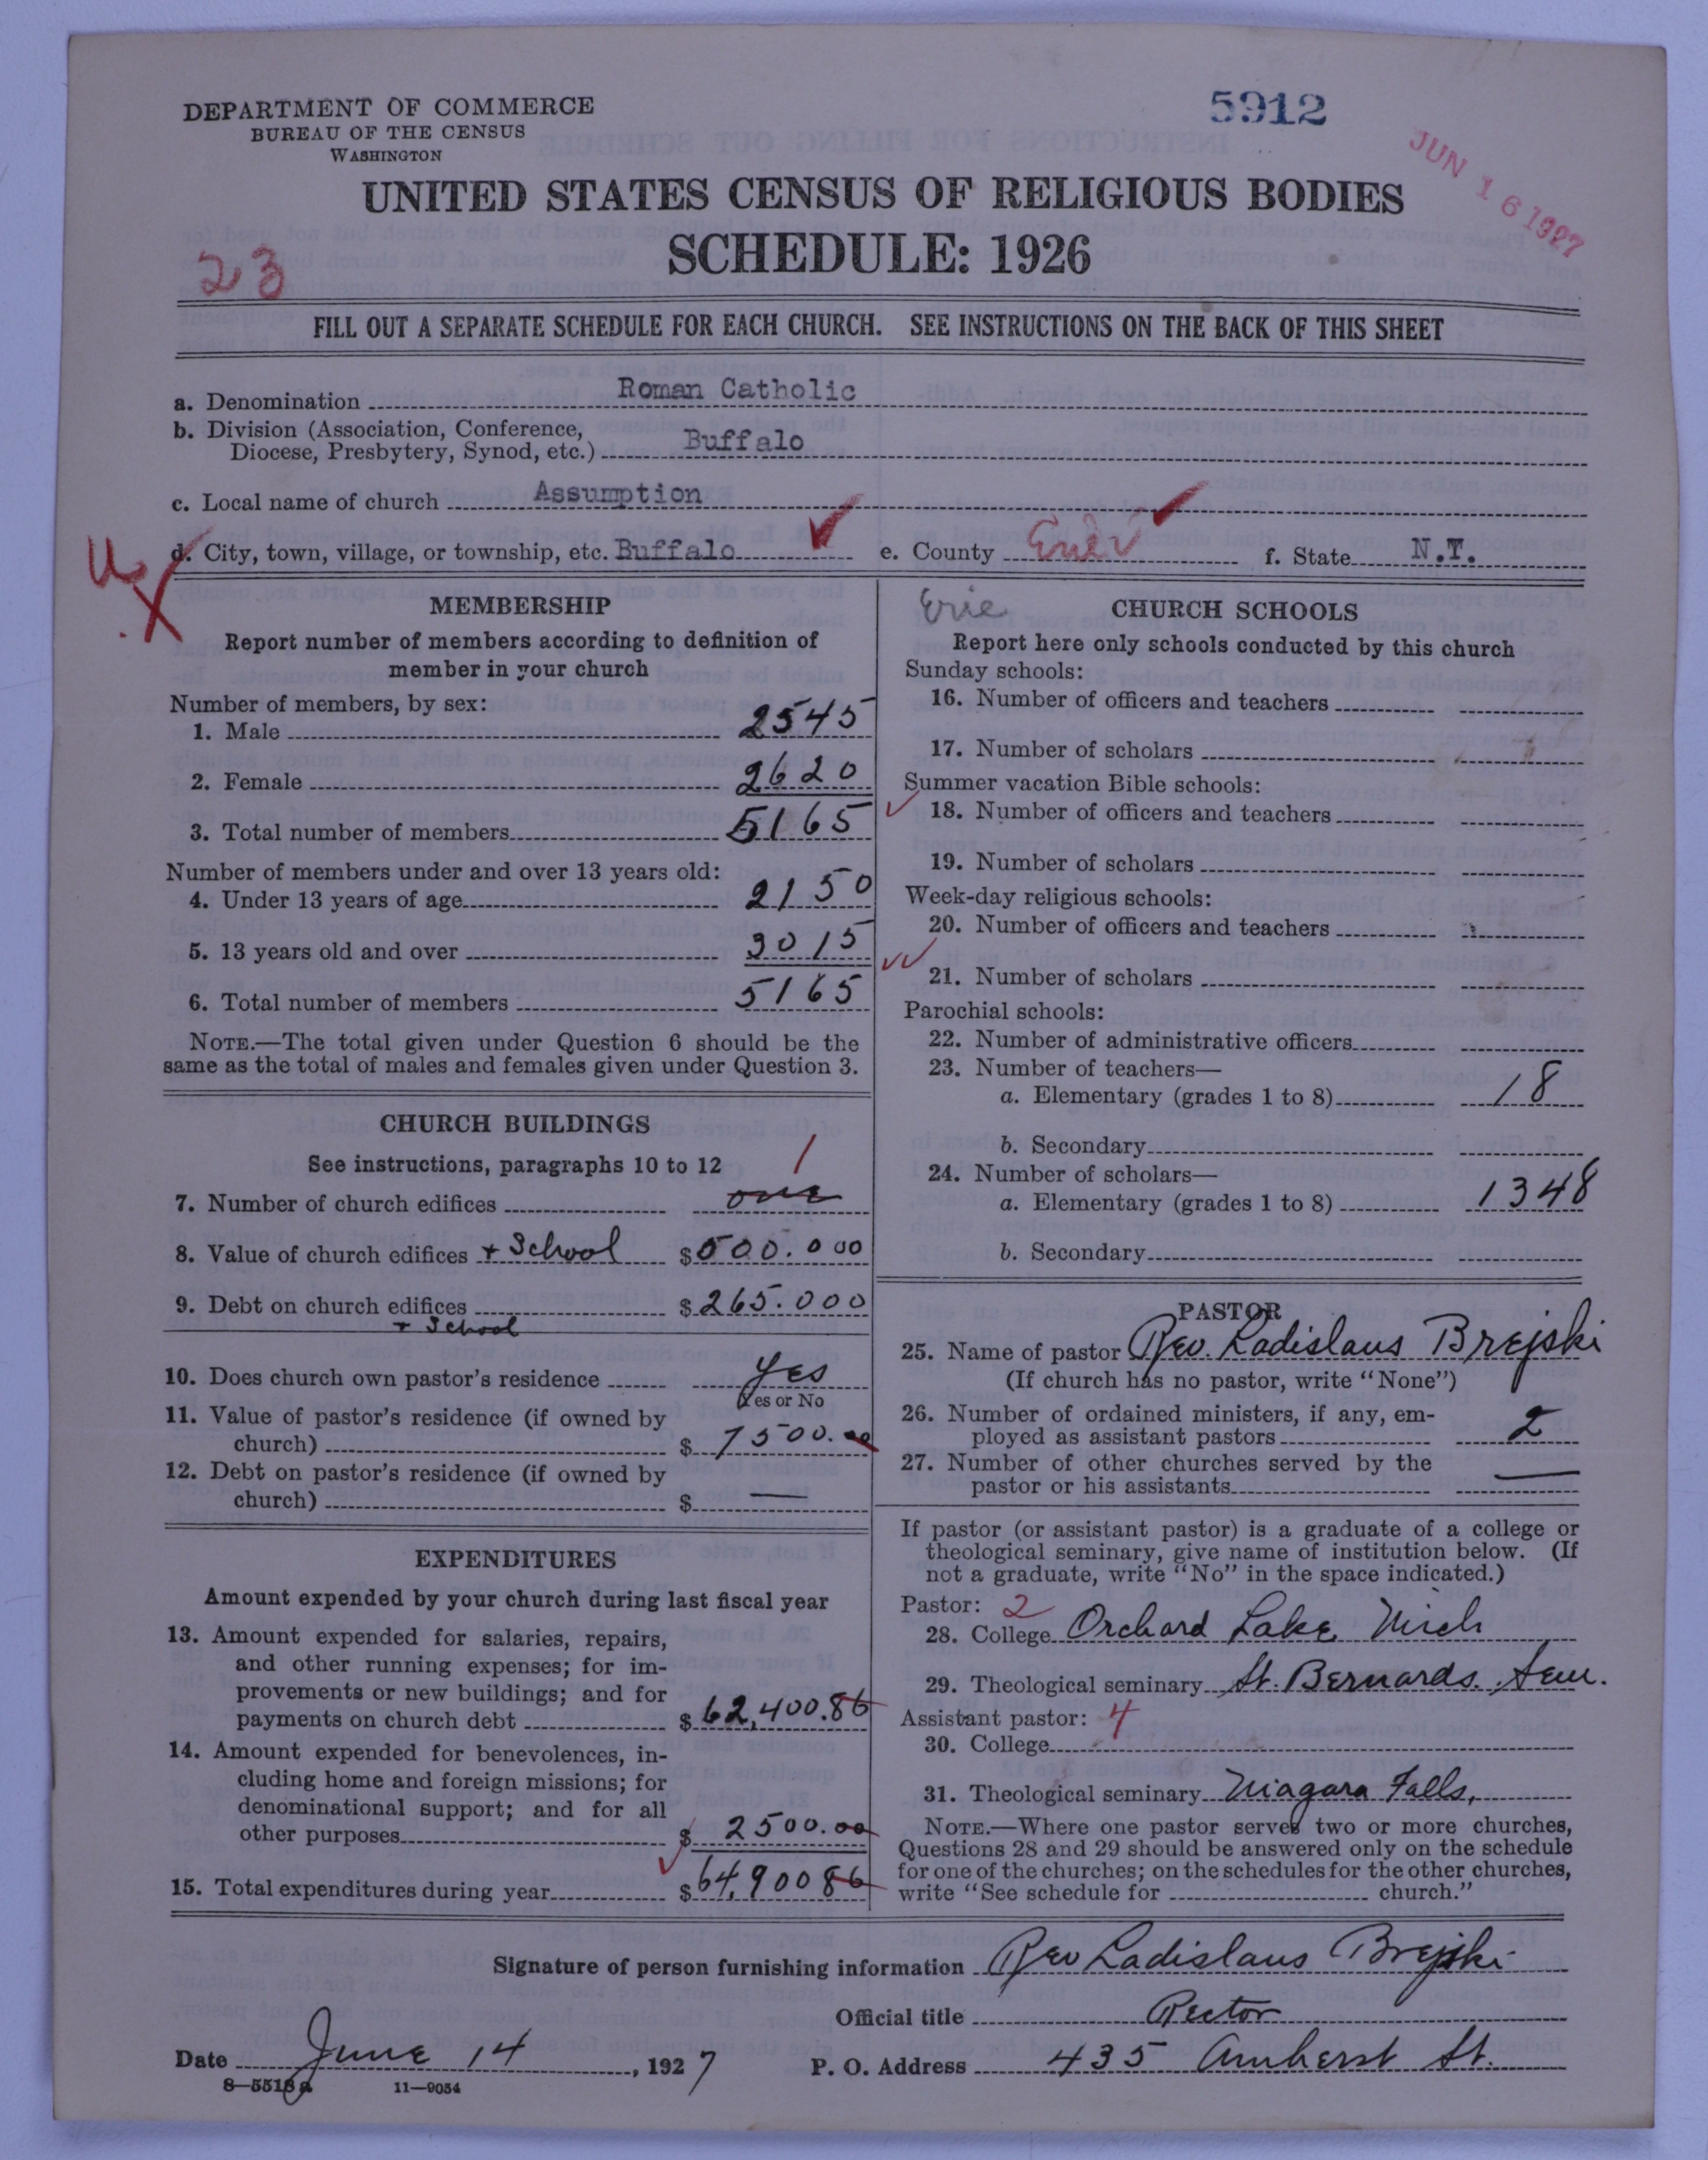 DEPARTMENT OF COMMERCE
BUREAU OF THE CENSUS
WASHINGTON
5912
JUN 16 1927
UNITED STATES CENSUS OF RELIGIOUS BODIES
SCHEDULE: 1926
23
FILL OUT A SEPARATE SCHEDULE FOR EACH CHURCH. SEE INSTRUCTIONS ON THE BACK OF THIS SHEET
a. Denomination Roman Catholic
b. Division (Association, Conference,
Diocese, Presbytery, Synod, etc.) Buffalo
c. Local name of church Assumption
d. City, town, village, or township, etc. Buffalo e. County Erie f. State N.Y.
MEMBERSHIP
Report number of members according to definition of
member in your church
Number of members, by sex:
1. Male 2545
2. Female 2620
3. Total number of members 5165
Number of members under and over 13 years old:
4. Under 13 years of age 2150
5. 13 years old and over 3015
6. Total number of members 5165
NOTE.—The total given under Question 6 should be the
same as the total of males and females given under Question 3.
CHURCH BUILDINGS
See instructions, paragraphs 10 to 12
1
7. Number of church edifices one
8. Value of church edifices + School $500.000
9. Debt on church edifices $265.000
+ School
10. Does church own pastor's residence yes
(Yes or No
11. Value of pastor's residence (if owned by
church) $7500.00
12. Debt on pastor's residence (if owned by
church) $ —
EXPENDITURES
Amount expended by your church during last fiscal year
13. Amount expended for salaries, repairs,
and other running expenses; for im-
provements or new buildings; and for
payments on church debt $62,400.86
14. Amount expended for benevolences, in-
cluding home and foreign missions; for
denominational support; and for all
other purposes $2500.00
15. Total expenditures during year $64,90086
Erie
CHURCH SCHOOLS
Report here only schools conducted by this church
Sunday schools:
16. Number of officers and teachers
17. Number of scholars
Summer vacation Bible schools:
18. Number of officers and teachers
19. Number of scholars
Week-day religious schools:
20. Number of officers and teachers
21. Number of scholars
Parochial schools:
22. Number of administrative officers
23. Number of teachers—
a. Elementary (grades 1 to 8) 18
b. Secondary
24. Number of scholars—
a. Elementary (grades 1 to 8) 1348
b. Secondary
PASTOR
25. Name of pastor Rev. Ladislaus Brejski
(If church has no pastor, write "None")
26. Number of ordained ministers, if any, em-
ployed as assistant pastors 2
27. Number of other churches served by the
pastor or his assistants —
If pastor (or assistant pastor) is a graduate of a college or
theological seminary, give name of institution below. (If
not a graduate, write "No" in the space indicated.)
Pastor: 2
28. College Orchard Lake Mich
29. Theological seminary St. Bernards. Sem.
Assistant pastor: 4
30. College
31. Theological seminary Niagara Falls,
NOTE.—Where one pastor serves two or more churches,
Questions 28 and 29 should be answered only on the schedule
for one of the churches; on the schedules for the other churches,
write "See schedule for church."
Signature of person furnishing information Rev Ladislaus Brejski
Official title Rector
Date June 14, 1927 P. O. Address 435 Amherst St.
8—5518a 11—9054